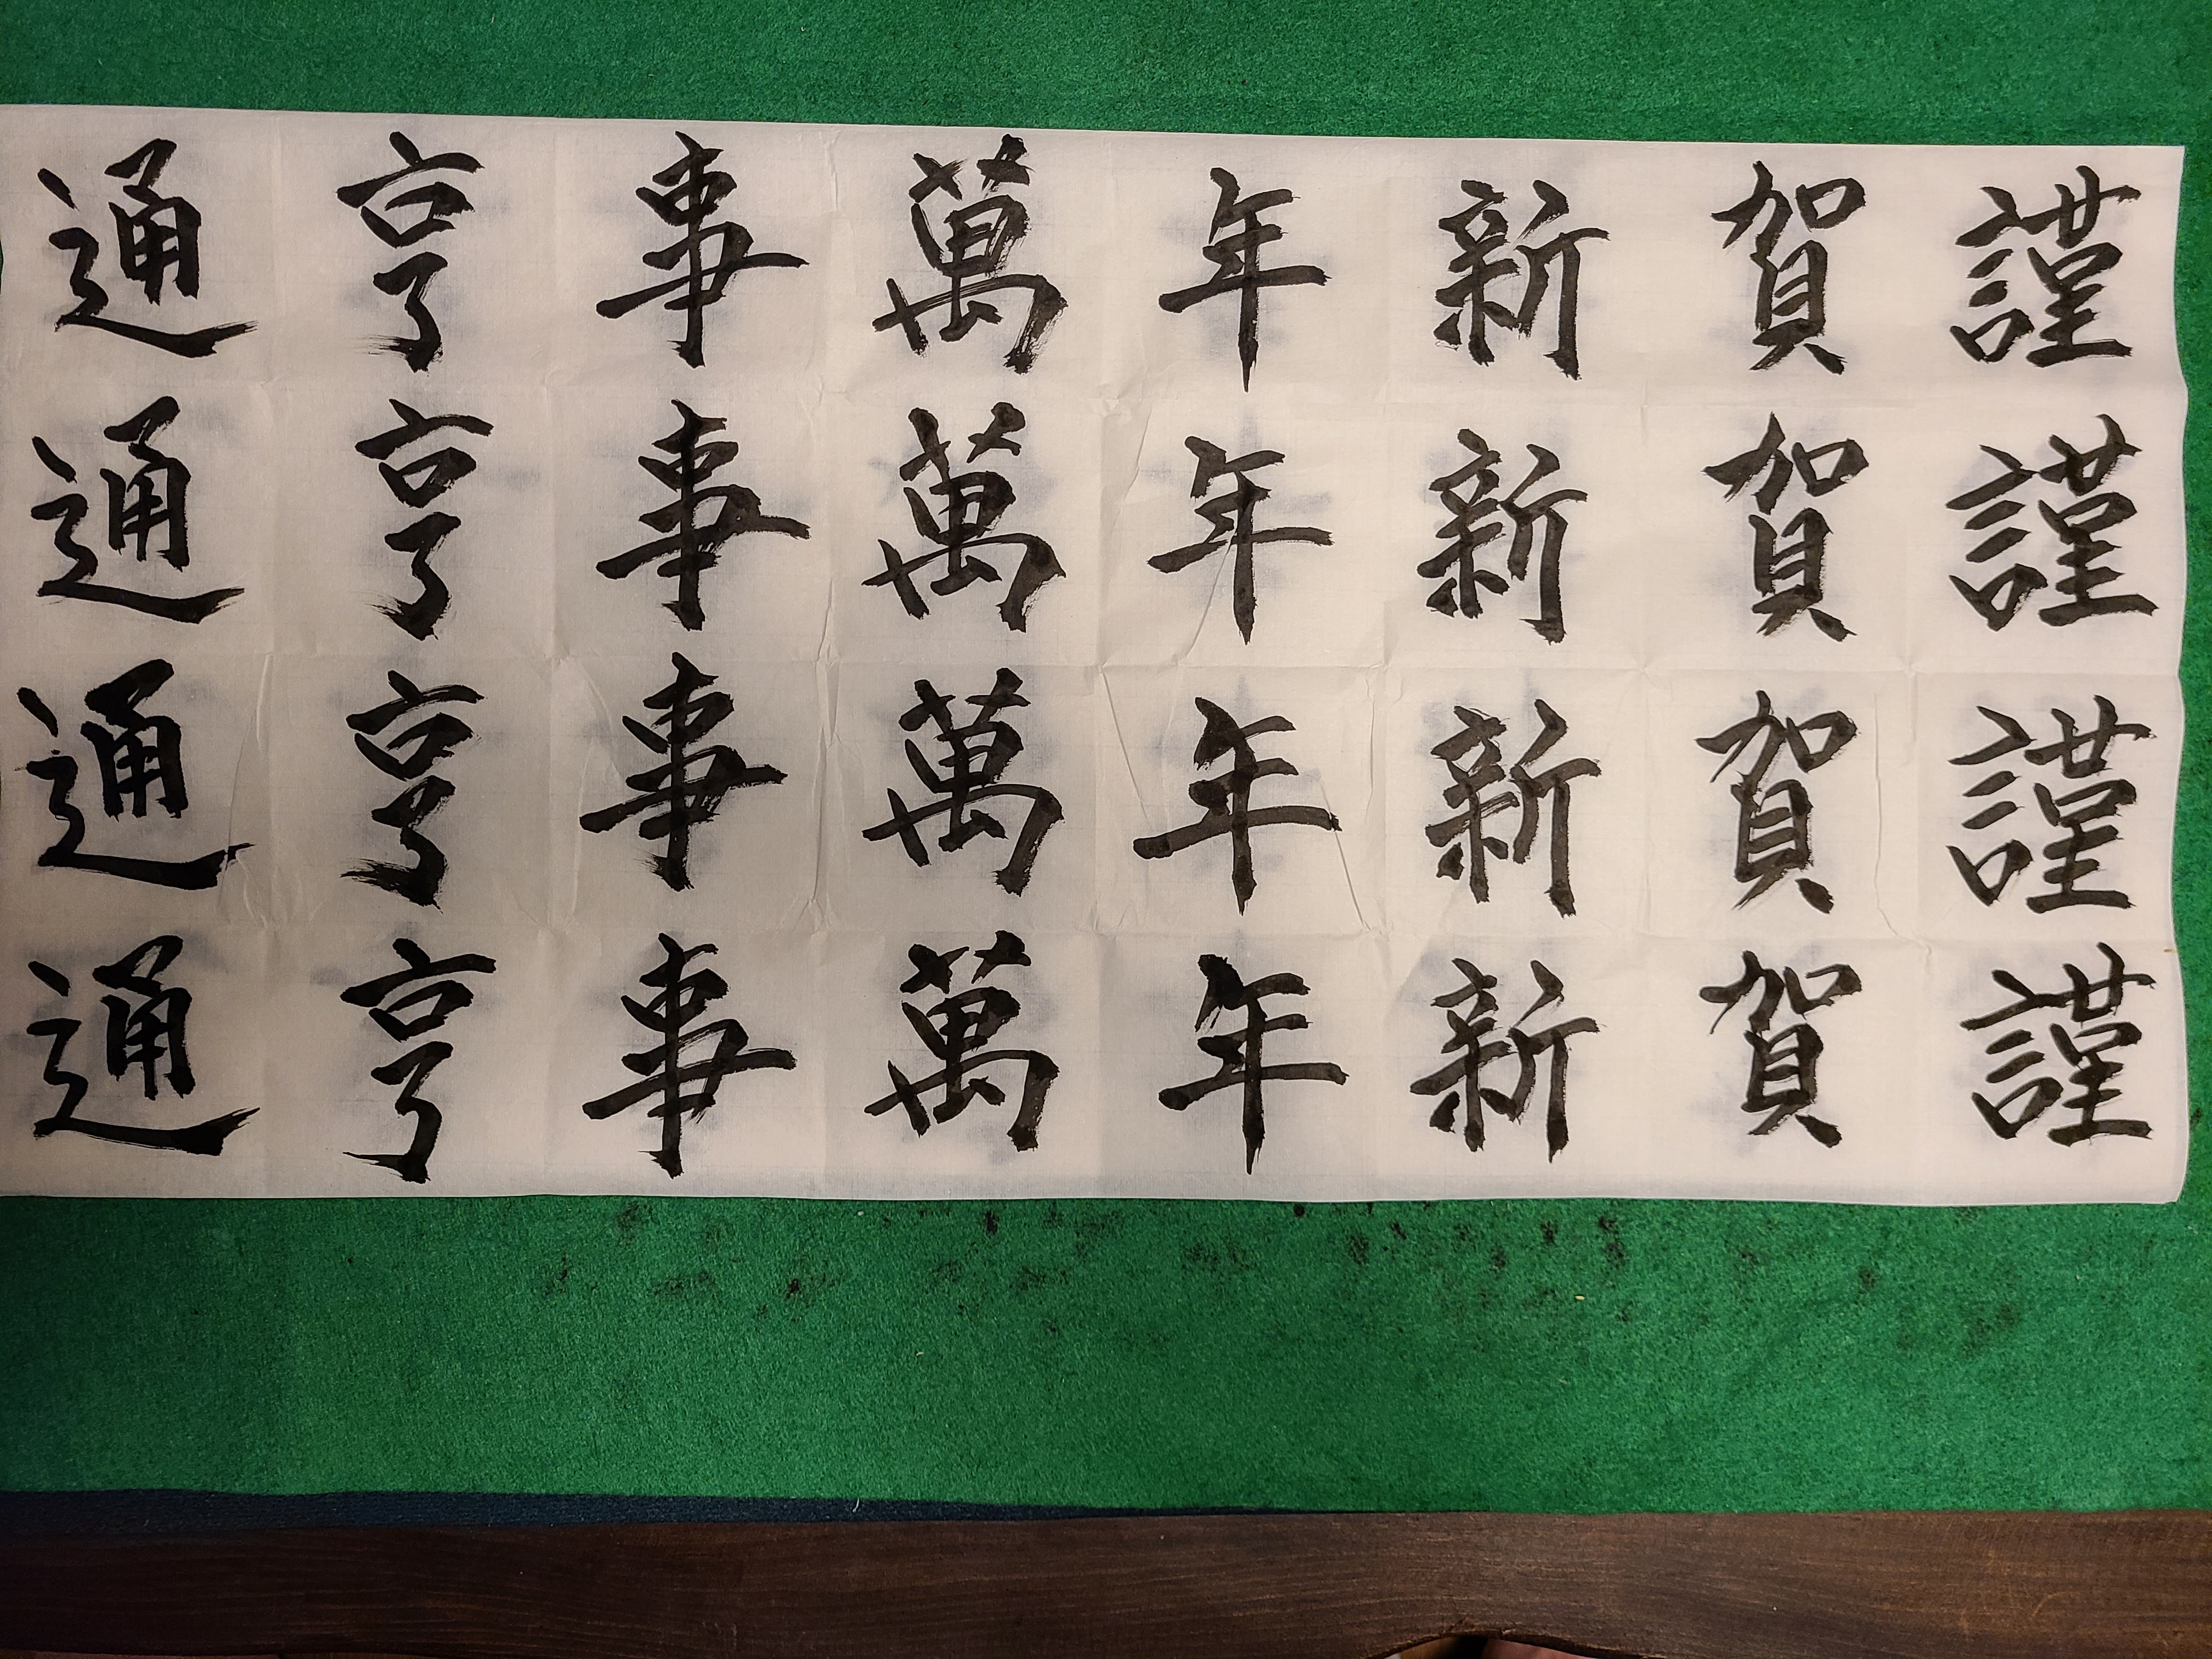 謹賀新年萬事亨通
謹賀新年萬事亨通
謹賀新年萬事亨通
謹賀新年萬事亨通